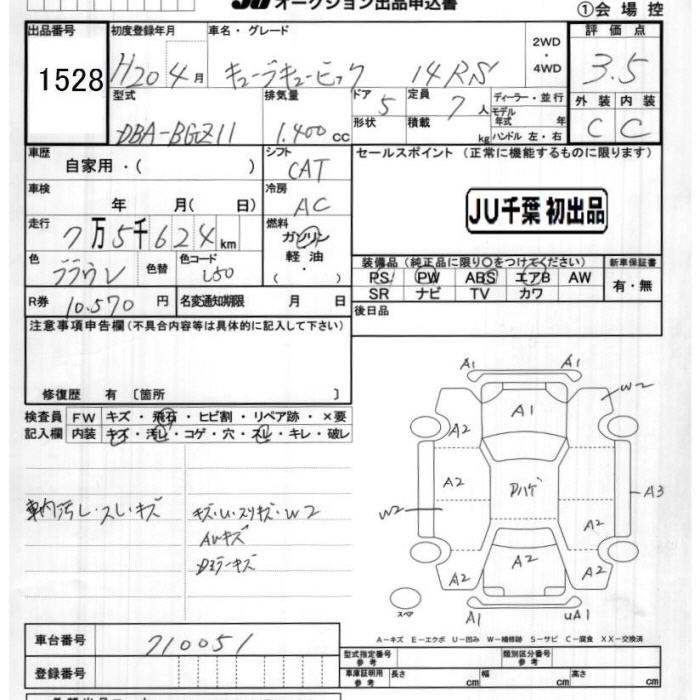 JU オークション出品申込書
①会場控
出品番号 1528
初度登録年月 H20 4月
車名・グレード キューブキュービック 14RS
2WD・4WD
評価点 3.5
外装 C 内装 C
型式 DBA-BGZ11
排気量 1.400cc
ドア 5 形状
定員 7人 積載 kg
ディーラー・並行
モデル年式 年
ハンドル 左・右
車歴 自家用・( )
シフト CAT
セールスポイント (正常に機能するものに限ります)
JU千葉 初出品
車検 年 月( 日)
冷房 AC
走行 7万5千624km
燃料 ガソリン 軽油・( )
色 ブラウン 色替 色コード L50
装備品 (純正品に限り○をつけてください)
PS PW ABS エアB AW
SR ナビ TV カワ
新車保証書 有・無
R券 10.570円 名変通知期限 月 日
後日品
注意事項申告欄(不具合内容等は具体的に記入して下さい)
修復歴 有 〔箇所 〕
検査員記入欄
FW キズ・飛石・ヒビ割・リペア跡・×要
内装 キズ・汚レ・コゲ・穴・スレ・キレ・破レ
車内汚レ・スレ・キズ
キズ・U・スリキズ・W2
AWキズ
A1 A1
W2
A1
A2
A2
Dハゲ
A3
W2
A2
A2
A2 A2
スペア
A1 uA1
A-キズ E-エクボ U-凹み W-補修跡 S-サビ C-腐食 XX-交換済
車台番号 710051
登録番号
型式指定番号 参考
類別区分番号 参考
車庫証明用 参考 長さ cm 幅 cm 高さ cm